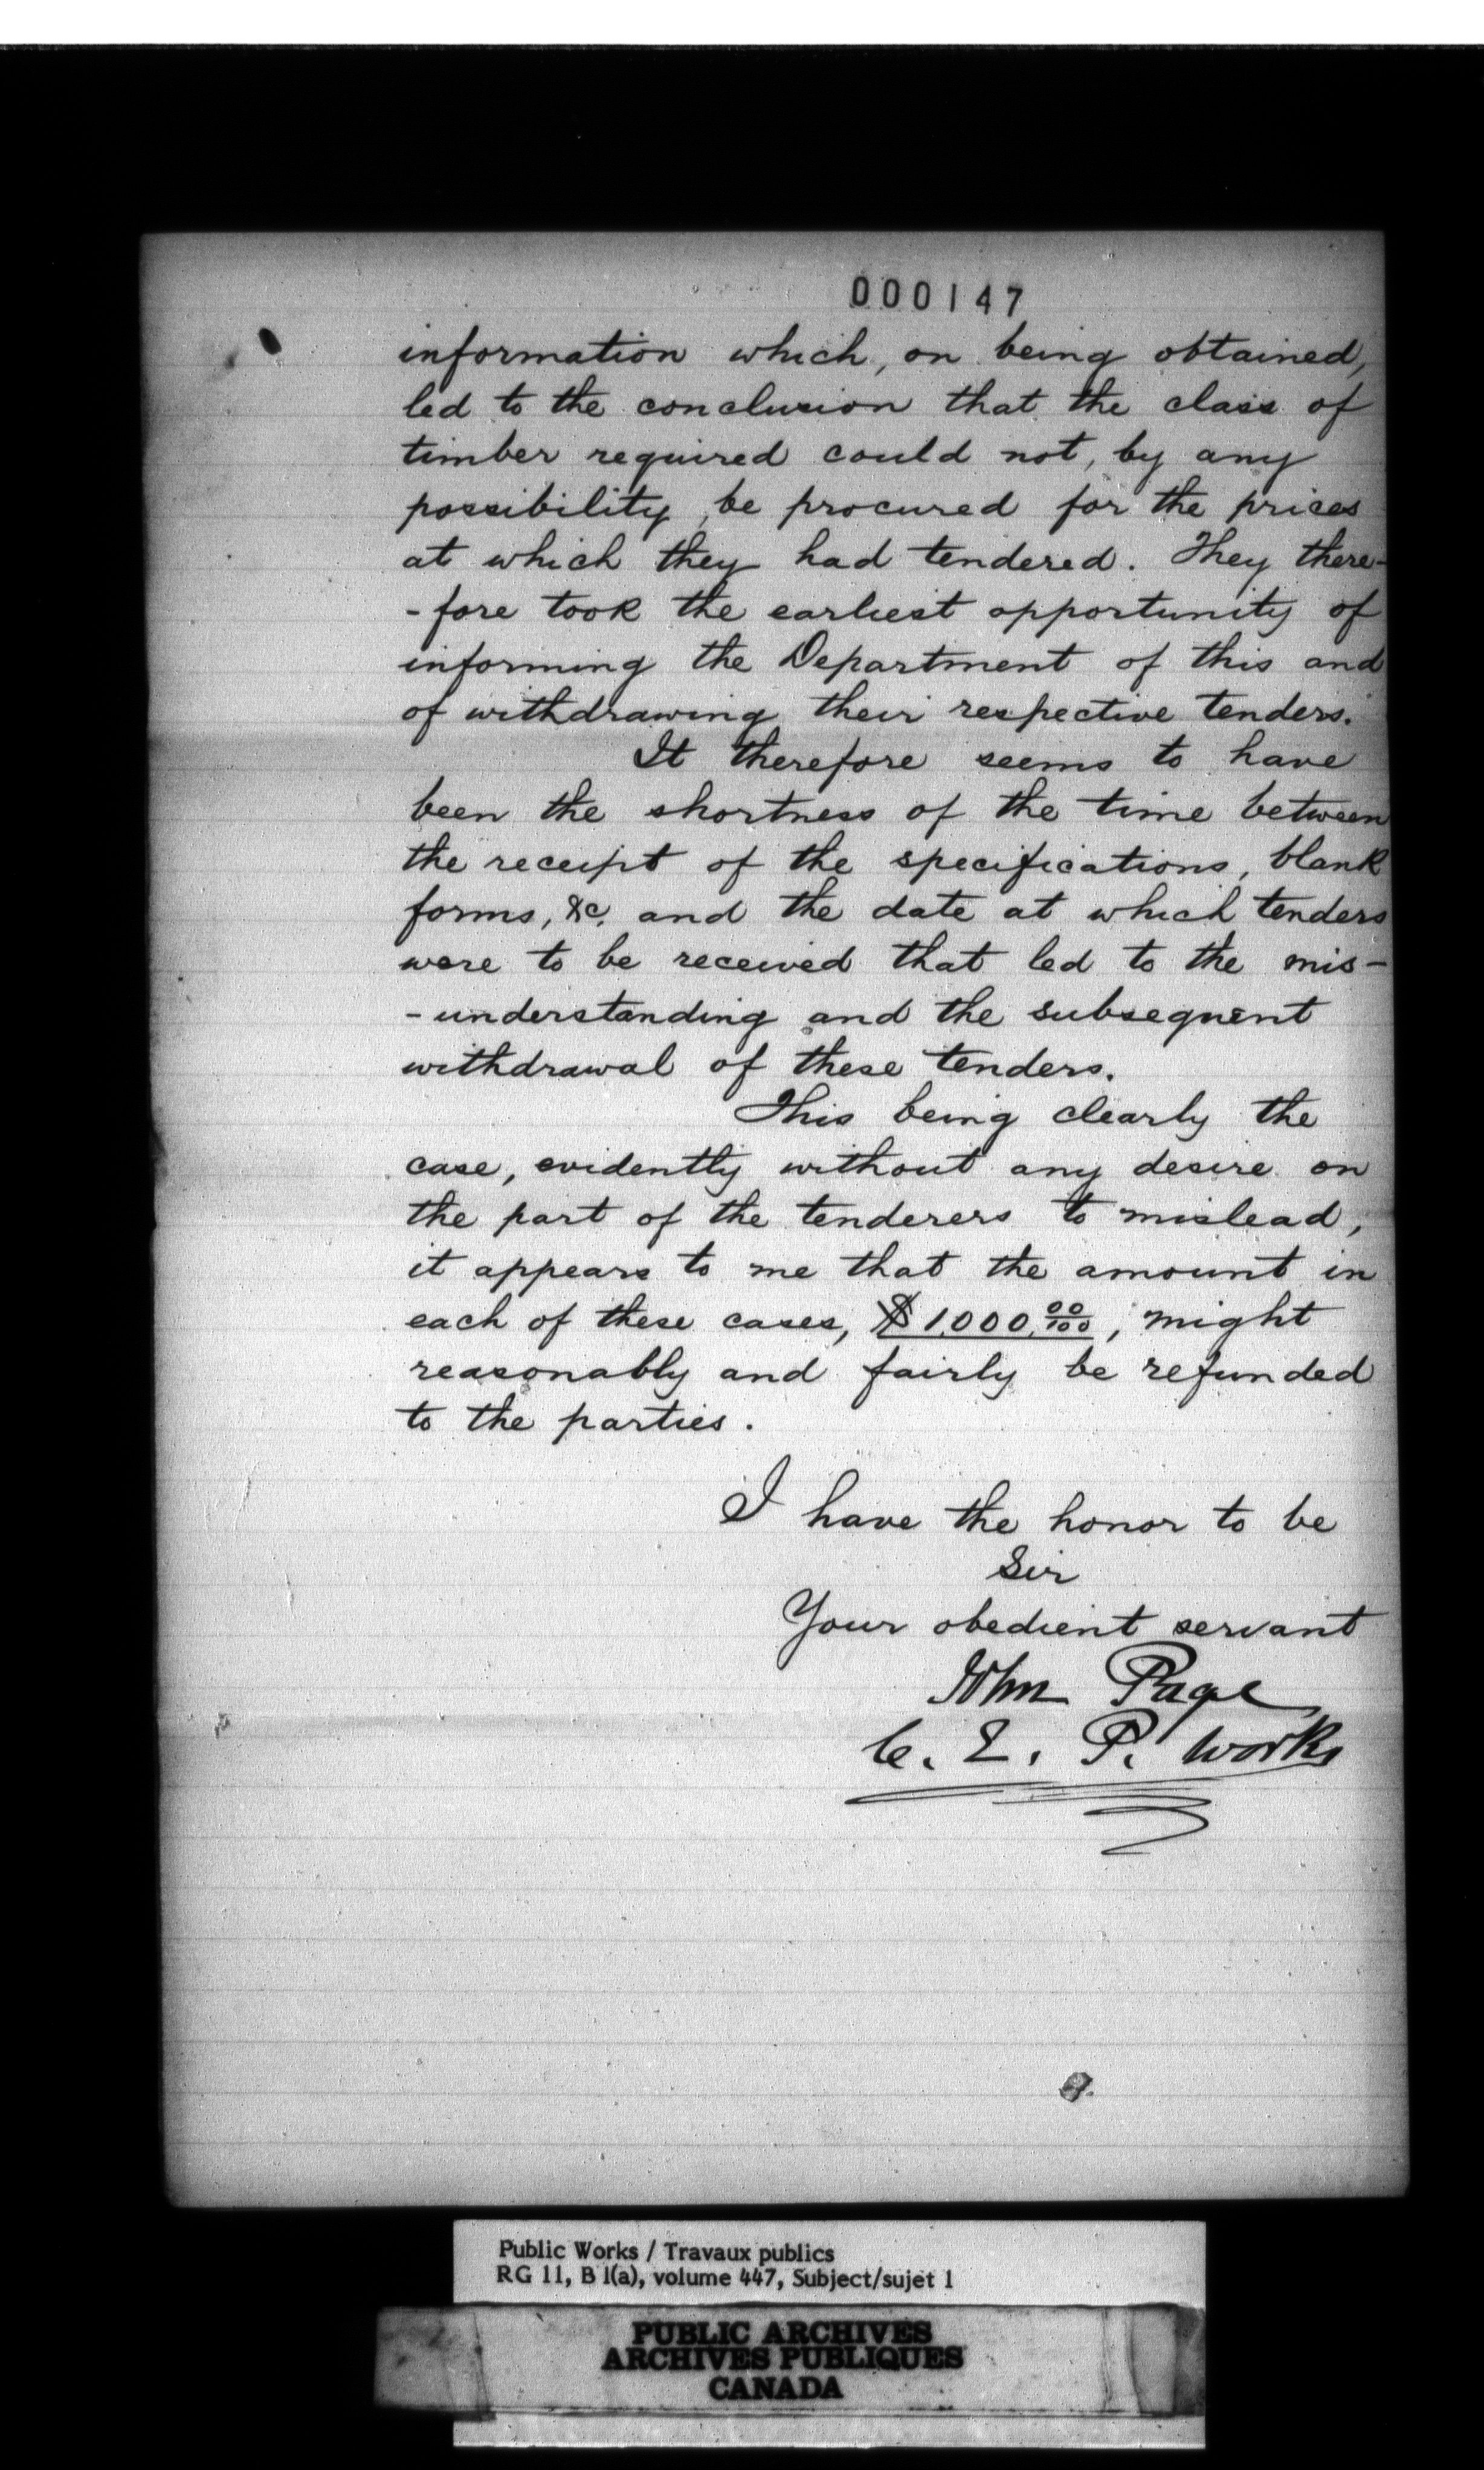 000147
information which, on being obtained,
led to the conclusion that the class of
timber required could not, by any
possibility, be procured for the prices
at which they had tendered. They there-
-fore took the earliest opportunity of
informing the Department of this and
of withdrawing their respective tenders.
It therefore seems to have
been the shortness of the time between
the receipt of the specifications, blank
forms, &c. and the date at which tenders
were to be received that led to the mis-
-understanding and the subsequent
withdrawal of these tenders.
This being clearly the
case, evidently without any desire on
the part of the tenderers to mislead,
it appears to me that the amount in
each of these cases, $1,000.00/100, might
reasonably and fairly be refunded
to the parties.
I have the honor to be
Sir
Your obedient servant
John Page
C. E. P. Works
Public Works / Travaux publics
RG 11, B 1(a), volume 447, Subject/sujet 1
PUBLIC ARCHIVES
ARCHIVES PUBLIQUES
CANADA